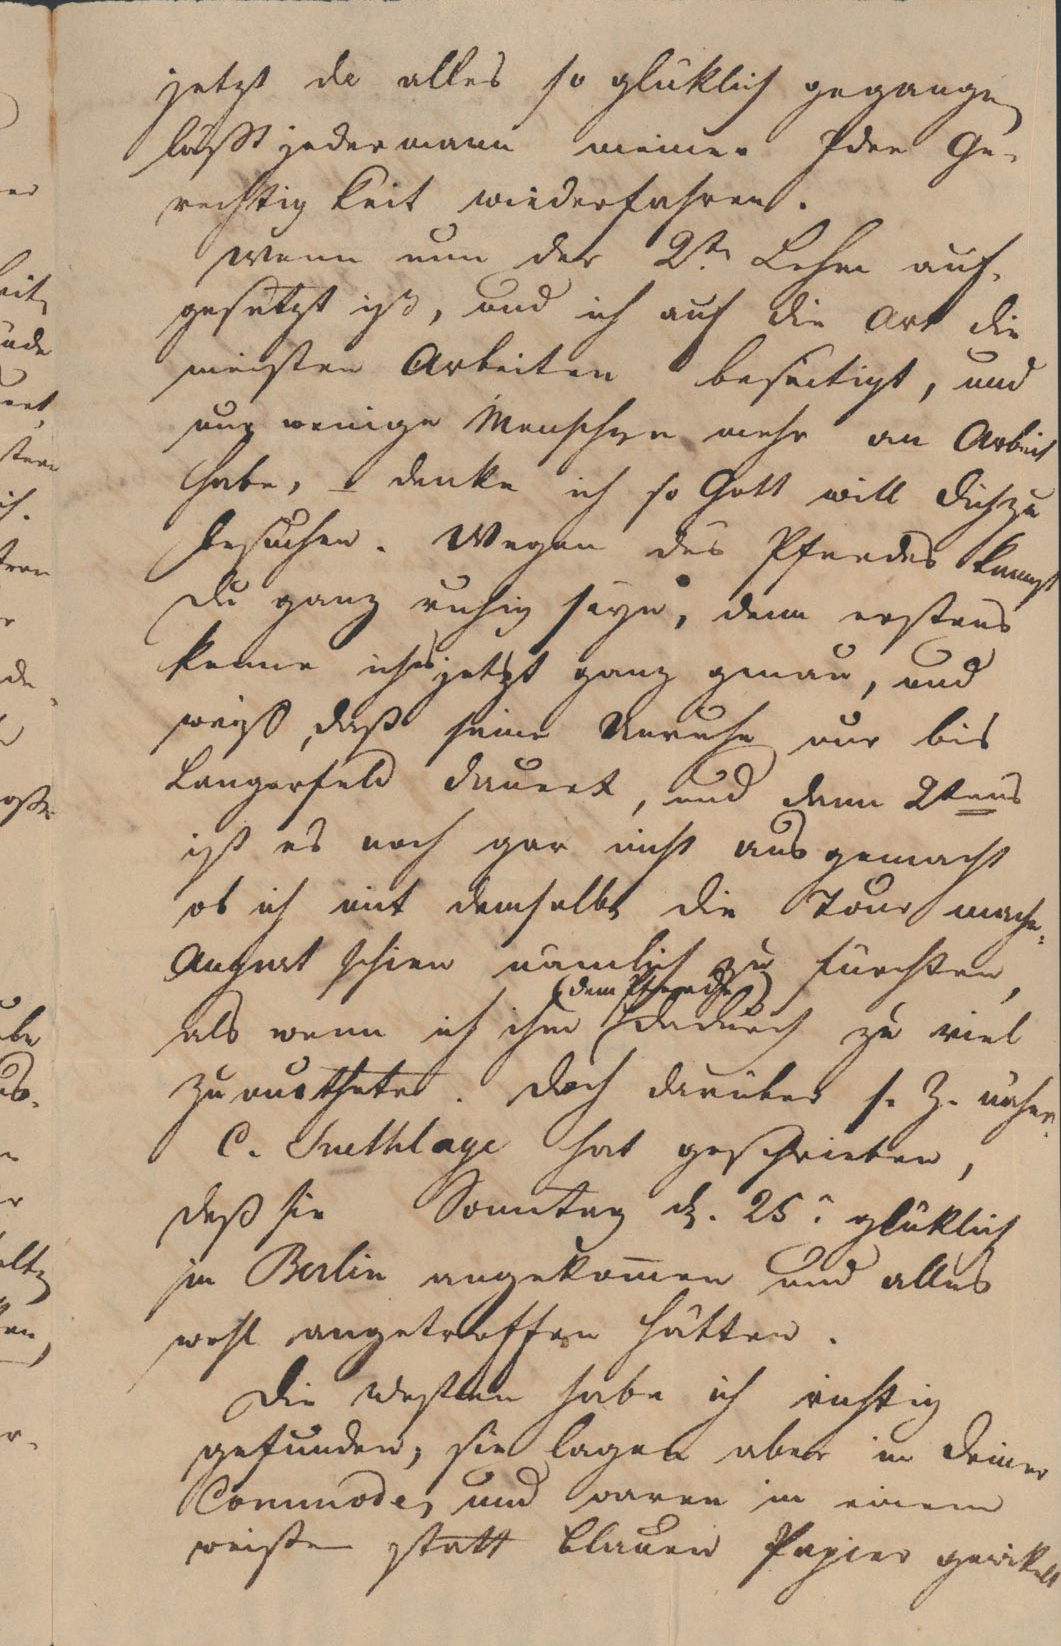 jetzt da alles so glüklich gegangen
läßt jedermann meiner Idee Ge-
rechtigkeit wiederfahren.
Wenn nun der 2te Lehm auf-
gesetzt ist, und ich auf die Art die
meisten Arbeiten beseitigt, und
nur wenige Menschen mehr an Arbeit
habe, – denke ich so Gott will Dich zu
besuchen. Wegen des Pferdes kannst
Du ganz ruhig seyn, denn erstens
kenne ich es jetzt ganz genau, und
weiß, daß seine Unruhe nur bis
Langerfeld dauert, und dann 2tens
ist es noch gar nicht ausgemacht
ob ich mit demselben die Tour mache.
August schien nämlich zu fürchten,
(dem Pferde)
als wenn ich ihm dadurch zu viel
zumuthete. Doch darüber s. Z. näher.
C. Snethlage hat geschrieben,
daß sie Sonntag d. 25n glüklich
in Berlin angekom̄en und alles
wohl angetroffen hätten.
Die Westen habe ich richtig
gefunden, sie lagen aber in Deiner
Commode, und waren in einem
weißen statt blauen Papier gewikelt